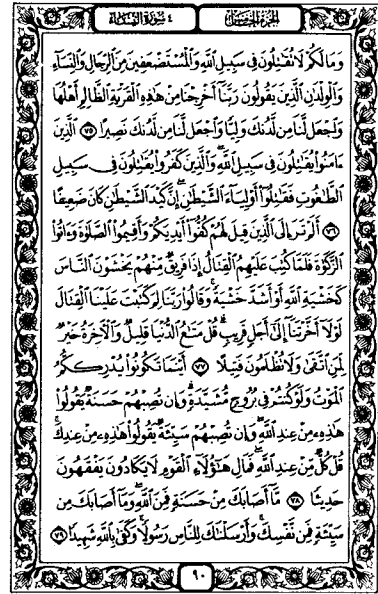 الجزء الخامس
٤ سورة النساء
وَمَا لَكُمْ لَا تُقَٰتِلُونَ فِى سَبِيلِ ٱللَّهِ وَٱلْمُسْتَضْعَفِينَ مِنَ ٱلرِّجَالِ وَٱلنِّسَآءِ
وَٱلْوِلْدَٰنِ ٱلَّذِينَ يَقُولُونَ رَبَّنَآ أَخْرِجْنَا مِنْ هَٰذِهِ ٱلْقَرْيَةِ ٱلظَّالِمِ أَهْلُهَا
وَٱجْعَل لَّنَا مِن لَّدُنكَ وَلِيًّا وَٱجْعَل لَّنَا مِن لَّدُنكَ نَصِيرًا ٧٥ ٱلَّذِينَ
ءَامَنُوا۟ يُقَٰتِلُونَ فِى سَبِيلِ ٱللَّهِ وَٱلَّذِينَ كَفَرُوا۟ يُقَٰتِلُونَ فِى سَبِيلِ
ٱلطَّٰغُوتِ فَقَٰتِلُوٓا۟ أَوْلِيَآءَ ٱلشَّيْطَٰنِ إِنَّ كَيْدَ ٱلشَّيْطَٰنِ كَانَ ضَعِيفًا
٧٦ أَلَمْ تَرَ إِلَى ٱلَّذِينَ قِيلَ لَهُمْ كُفُّوٓا۟ أَيْدِيَكُمْ وَأَقِيمُوا۟ ٱلصَّلَوٰةَ وَءَاتُوا۟
ٱلزَّكَوٰةَ فَلَمَّا كُتِبَ عَلَيْهِمُ ٱلْقِتَالُ إِذَا فَرِيقٌ مِّنْهُمْ يَخْشَوْنَ ٱلنَّاسَ
كَخَشْيَةِ ٱللَّهِ أَوْ أَشَدَّ خَشْيَةً وَقَالُوا۟ رَبَّنَا لِمَ كَتَبْتَ عَلَيْنَا ٱلْقِتَالَ
لَوْلَآ أَخَّرْتَنَآ إِلَىٰٓ أَجَلٍ قَرِيبٍ قُلْ مَتَٰعُ ٱلدُّنْيَا قَلِيلٌ وَٱلْءَاخِرَةُ خَيْرٌ
لِّمَنِ ٱتَّقَىٰ وَلَا تُظْلَمُونَ فَتِيلًا ٧٧ أَيْنَمَا تَكُونُوا۟ يُدْرِككُّمُ
ٱلْمَوْتُ وَلَوْ كُنتُمْ فِى بُرُوجٍ مُّشَيَّدَةٍ وَإِن تُصِبْهُمْ حَسَنَةٌ يَقُولُوا۟
هَٰذِهِۦ مِنْ عِندِ ٱللَّهِ وَإِن تُصِبْهُمْ سَيِّئَةٌ يَقُولُوا۟ هَٰذِهِۦ مِنْ عِندِكَ
قُلْ كُلٌّ مِّنْ عِندِ ٱللَّهِ فَمَالِ هَٰٓؤُلَآءِ ٱلْقَوْمِ لَا يَكَادُونَ يَفْقَهُونَ
حَدِيثًا ٧٨ مَّآ أَصَابَكَ مِنْ حَسَنَةٍ فَمِنَ ٱللَّهِ وَمَآ أَصَابَكَ مِن
سَيِّئَةٍ فَمِن نَّفْسِكَ وَأَرْسَلْنَٰكَ لِلنَّاسِ رَسُولًا وَكَفَىٰ بِٱللَّهِ شَهِيدًا ٧٩
٩٠